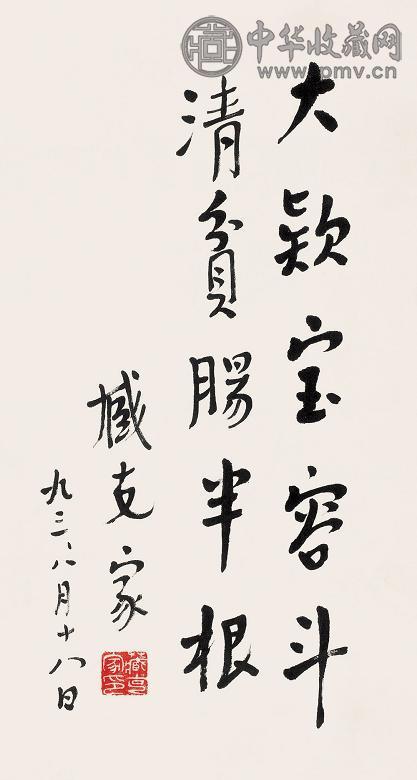 中华收藏网
www.pmv.cn
大欵宝容斗
清貧腸半根
臧克家
九三、八月十八日
臧克家印